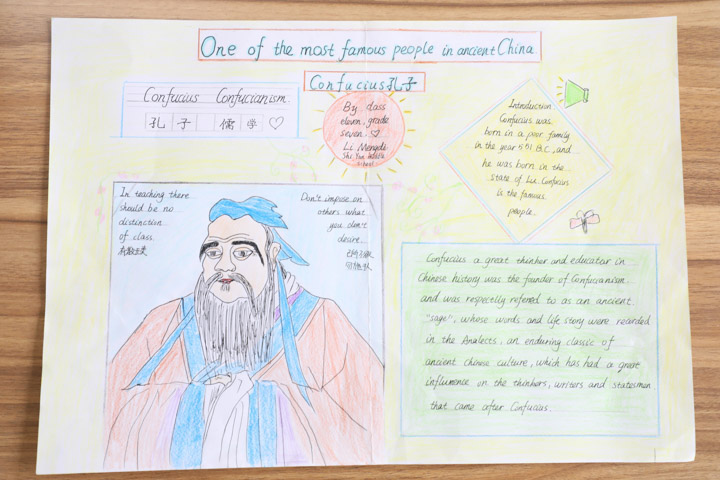 One of the most famous people in ancient China
Confucius孔子
Confucius Confucianism
孔 子 儒 学
By class
eleven, grade
seven.
Li Mengdi
school
Introduction
Confucius was
born in a poor family
in the year 551 B.C, and
he was born in the
state of Lu. Confucius
is the famous
people.
In teaching there
should be no
distinction
of class.
有教无类
Don't impose on
others what
you don't
desire.
Confucius a great thinker and educator in
Chinese history was the founder of Confucianism
and was respectlly referred to as an ancient
"sage", whose words and life story were recorded
in the Analects, an enduring classic of
ancient Chinese culture, which has had a great
influmence on the thinkers, writers and statesmen
that came after Confucius